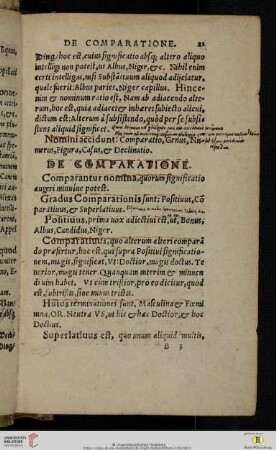 DE COMPARATIONE. 21
Ding/ hoc est, cuius significatio absq; altero aliquo
intelligi non potest, ut Albus, Niger, &c. Nihil enim
certi intelligas, nisi Substātiuum aliquod adijciatur,
quale fuerit: Albus paries, Niger capillus. Hinc e-
nim & nominum ratio est, Nam ab adiacendo alte-
rum, hoc est, quia adiacet & inhaeret subiecto alicui,
dictum est: Alterum à subsistendo, quòd per se subsi-
stens aliquid significet.
Nomini accidunt: Comparatio, Genus, Nu-
merus, Figura, Casus, & Declinatio.
DE COMPARATIONE.
Comparantur nomina, quorum significatio
augeri minuiue potest.
Gradus Comparationis sunt: Positiuus, Cō
paratiuus, & Superlatiuus.
Positiuus, prima uox adiectiui est, ut, Bonus,
Albus, Candidus, Niger.
Comparatiuus, quo alterum alteri compara
do praefertur, hoc est, qui supra Positiui significatio-
nem, magis, significat, Vt: Doctior, magis doctus. Te
nerior, magis tener. Quanquam interim & minuen
di uim habet, Vt cùm tristior, pro eo dicitur, quod
est, subtristis, siue minus tristis.
Huius terminationes sunt, Masculina & Foemi
nina, OR. Neutra VS, ut hic & haec Doctior, & hoc
Doctius.
Superlatiuus est, quo unum aliquid multis,
B 3